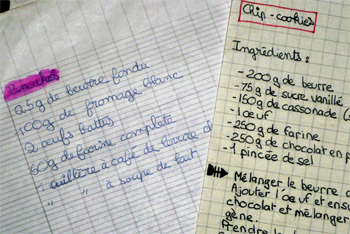 Pancakes
25g de beurre fondu
100g de fromage blanc
2 oeufs battus
60g de farine complète
1 cuillère à café de levure ch
1 " " à soupe de lait
Chip-cookies
Ingrédients :
-200g de beurre
-75g de sucre vanillé
-150g de cassonade (
-1 oeuf
-250g de farine
-250g de chocolat en p
-1 pincée de sel
Mélanger le beurre a
Ajouter l'oeuf et ens
chocolat et mélanger
gène.
Prendre le